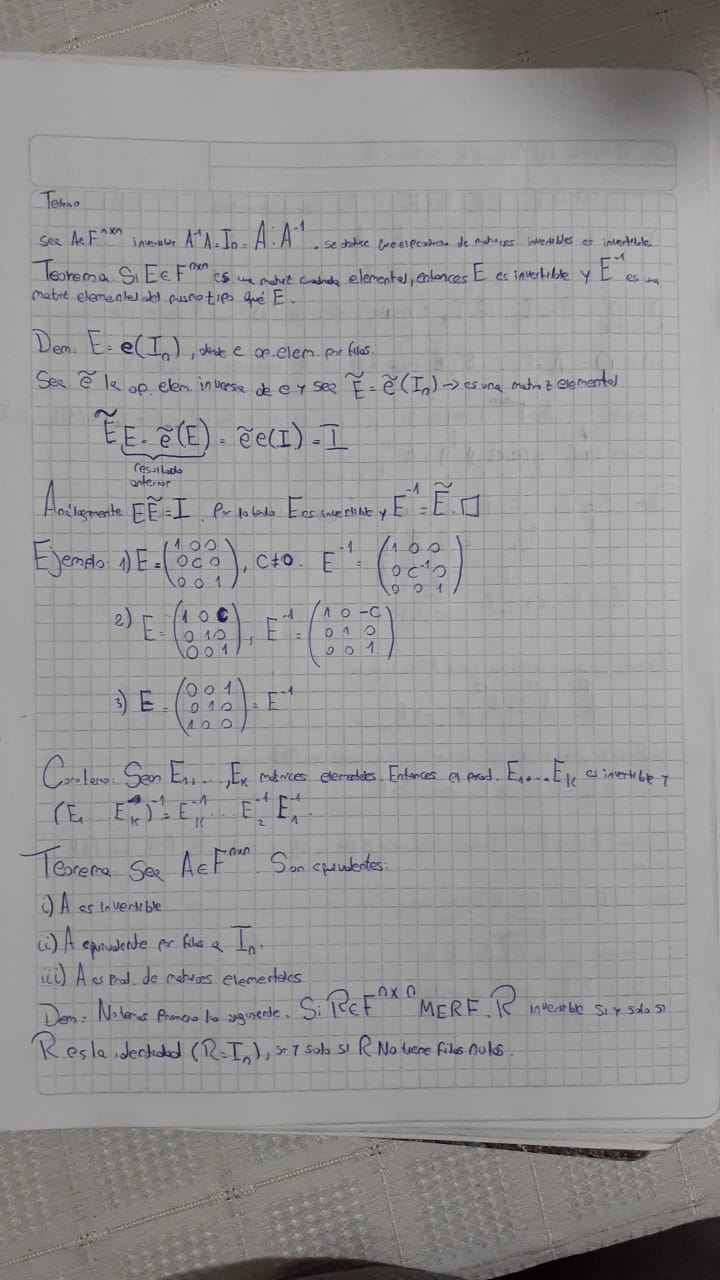 Teo
Sea A∈F^{n×n} invertible A^{-1}A = I_n = A·A^{-1}. se deduce que el producto de matrices invertibles es invertible.
Teorema Si E∈F^{n×n} es una matriz cuadrada elemental, entonces E es invertible y E^{-1} es una
matriz elemental del mismo tipo qué E.
Dem. E = e(I_n), donde e op. elem. por filas.
Sea ẽ la op. elem. inversa de e y sea Ẽ = ẽ(I_n) → es una matriz elemental
ẼE = ẽ(E) = ẽe(I) = I
resultado
anterior
Análogamente EẼ = I. Por lo tanto E es invertible y E^{-1} = Ẽ. □
Ejemplo: 1) E = (1 0 0; 0 c 0; 0 0 1), c≠0. E^{-1} = (1 0 0; 0 c^{-1} 0; 0 0 1)
2) E = (1 0 c; 0 1 0; 0 0 1), E^{-1} = (1 0 -c; 0 1 0; 0 0 1)
3) E = (0 0 1; 0 1 0; 1 0 0) = E^{-1}
Corolario. Sean E_1, ..., E_k matrices elementales. Entonces el prod. E_1 .... E_k es invertible y
(E_1 ... E_k)^{-1} = E_k^{-1} ... E_2^{-1} E_1^{-1}.
Teorema Sea A∈F^{n×n}. Son equivalentes:
i) A es Invertible
ii) A equivalente por filas a I_n.
iii) A es Prod. de matrices elementales
Dem: Notemos Primero lo siguiente. Si R∈F^{n×n} MERF. R invertible si y solo si
R es la identidad (R=I_n), si y solo si R No tiene filas nulas.